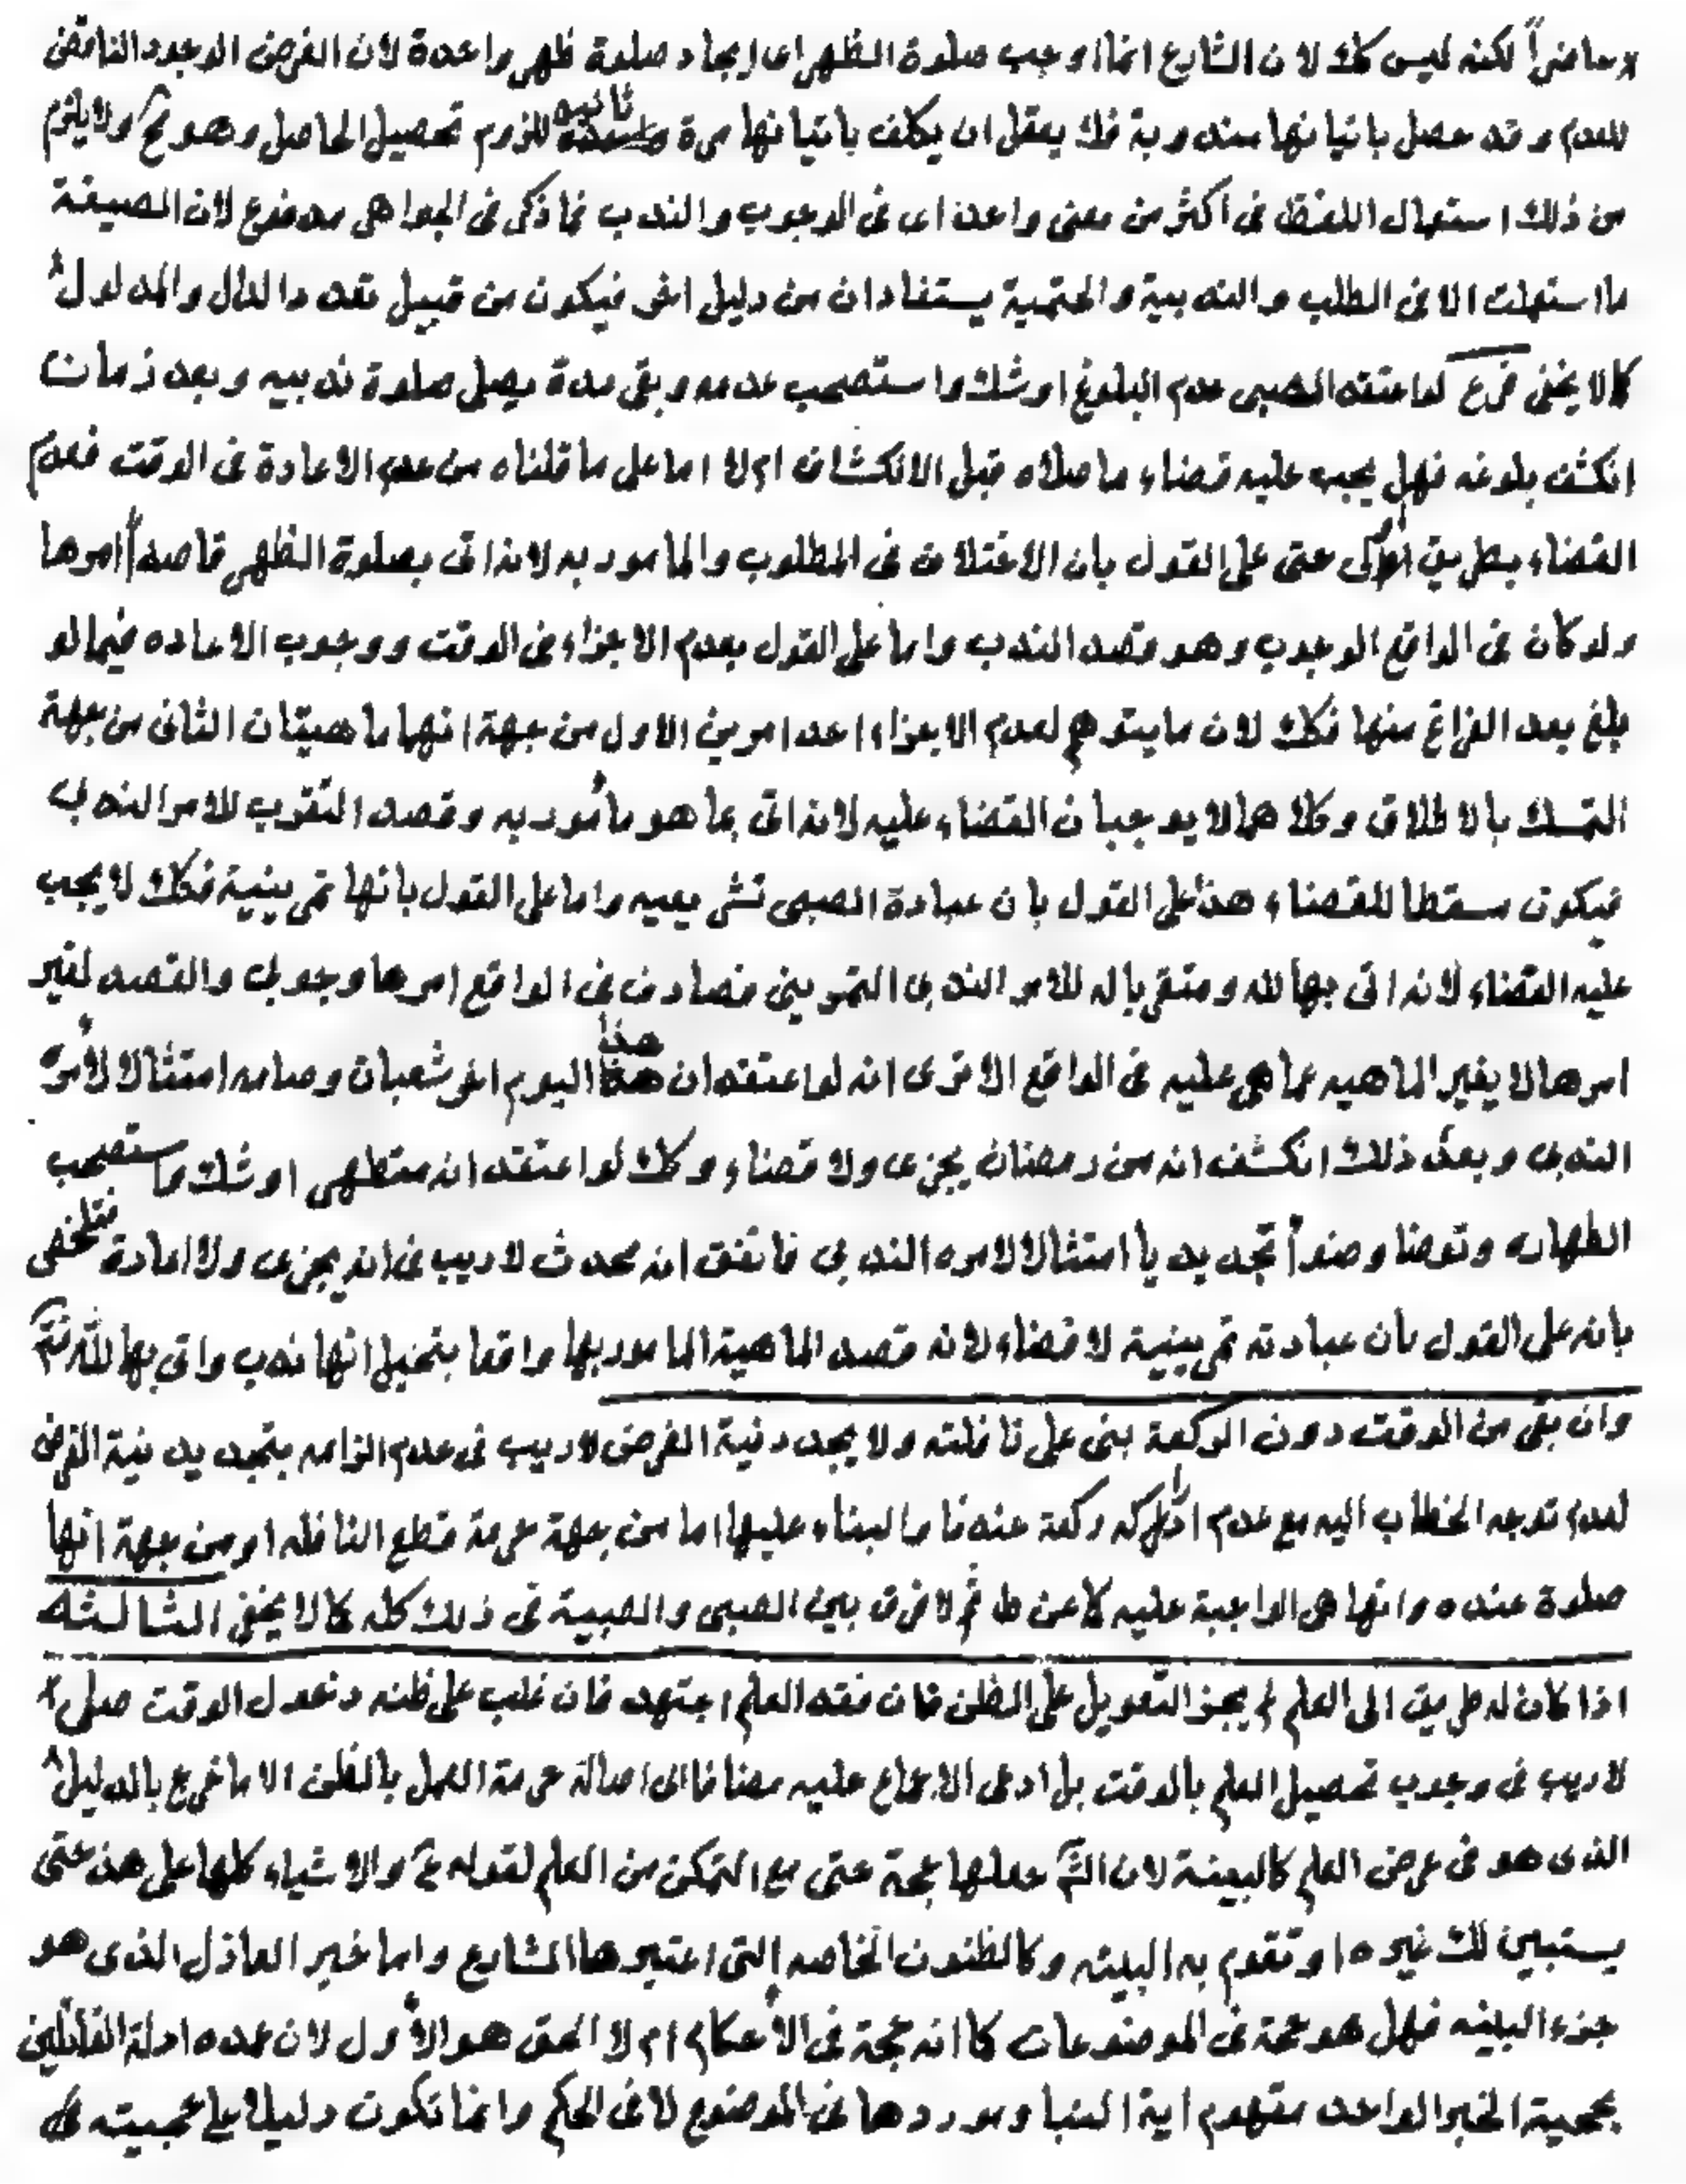 حاضراً لكنه ليس كك لان الشارع انما اوجب صلوة الظهر اى ايجاد صلوة ظهر واحدة لان الغرض الوجود الناقض
للعدم وقد حصل باتيانها مندوبة فلا يعقل ان يكلف باتيانها مرة ثانيه للزوم تحصيل الحاصل وهو مح ولا يلزم
من ذلك استعمال اللفظ فى اكثر من معنى واحد اى فى الوجوب والندب فما ذكر فى الجواهر مدفوع لان الصيغة
ما استعملت الا فى الطلب والندبية والحتمية يستفادان من دليل اخر فيكون من قبيل تعدد الدال والمدلول
كما لا يخفى فرع لو اعتقد الصبى عدم البلوغ او شك واستصحب عدمه وبقى مدة يصلى صلوة ندبيه وبعد زمان
انكشف بلوغه فهل يجب عليه قضاء ما صلاه قبل الانكشاف ام لا اما على ما قلناه من عدم الاعادة فى الوقت فعدم
القضاء بطريق اولى حتى على القول بان الاختلاف فى المطلوب والمامور به لانه اتى بصلوة الظهر قاصداً امرها
ولو كان فى الواقع الوجوب وهو قصد الندب واما على القول بعدم الاجزاء فى الوقت ووجوب الاعاده فيما لو
بلغ بعد الفراغ منها فكك لان ما يتوهم لعدم الاجزاء احد امرين الاول من جهة انها ماهيتان الثانى من جهة
التمسك بالاطلاق وكلاهما لا يوجبان القضاء عليه لانه اتى بما هو مأمور به وقصد التقرب للامر الندبى
فيكون مسقطا للقضاء هذا على القول بان عبادة الصبى تشريعيه واما على القول بانها تمرينية فكك لا يجب
عليه القضاء لانه اتى بها لله ومتقربا له للامر الندبى التمرينى فصادف فى الواقع امرها وجوبى والقصد لغير
امرها لا يغير الماهيه عما هى عليه فى الواقع الا ترى انه لو اعتقد ان هذا اليوم اخر شعبان وصامه امتثالا لأمره
الندبى وبعد ذلك انكشف انه من رمضان يجزى ولا قضاء وكك لو اعتقد انه متطهر او شك واستصحب
الطهاره وتوضا وضوءاً تجديديا امتثالا لامره الندبى فاتفق انه محدث لا ريب فى انه يجزى ولا اعادة فتلخص
بانه على القول بان عبادته تمرينية لا قضاء لانه قصد الماهية المامور بها واقعا بتخيل انها ندب واتى بها لله تع
وان بقى من الوقت دون الركعة بنى على نافلته ولا يجدد نية الفرض لا ريب فى عدم الزامه بتجديد نية الفرض
لعدم توجه الخطاب اليه مع عدم ادراكه ركعة عندنا والبناء عليها اما من جهة حرمة قطع النافله او من جهة انها
صلوة عنده وانها هى الواجبة عليه كما عن ط ثم لا فرق بين الصبى والصبية فى ذلك كله كما لا يخفى الثالثه
اذا كان له طريق الى العلم لم يجز التعويل على الظن فان فقد العلم اجتهد فان غلب على ظنه دخول الوقت صلى
لا ريب فى وجوب تحصيل العلم بالوقت بل ادعى الاجماع عليه مضافا الى اصالة حرمة العمل بالظن الا ما خرج بالدليل
الذى هو فى عرض العلم كالبينة لان الش جعلها حجة حتى مع التمكن من العلم لقوله ع والاشياء كلها على هذ حتى
يستبين لك غيره او تقوم به البينه وكالظنون الخاصه التى اعتبرها الشارع واما خبر العادل الذى هو
جزء البينه فهل هو حجة فى الموضوعات كما انه حجة فى الأحكام ام لا الحق هو الأول لان عمده ادلة القائلين
بحجية الخبر الواحد مفهوم اية النبا وموردها فى الموضوع لا فى الحكم وانما تكون دليلا على حجيته فى